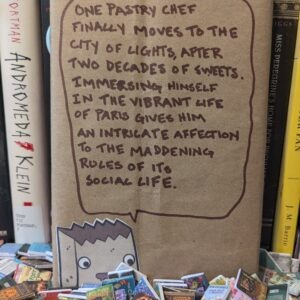 ONE PASTRY CHEF
FINALLY MOVES TO THE
CITY OF LIGHTS, AFTER
TWO DECADES OF SWEETS.
IMMERSING HIMSELF
IN THE VIBRANT LIFE
OF PARIS GIVES HIM
AN INTRICATE AFFECTION
TO THE MADDENING
RULES OF ITS
SOCIAL LIFE.
OATMAN
ANDROMEDA KLEIN
J. M. Barrie